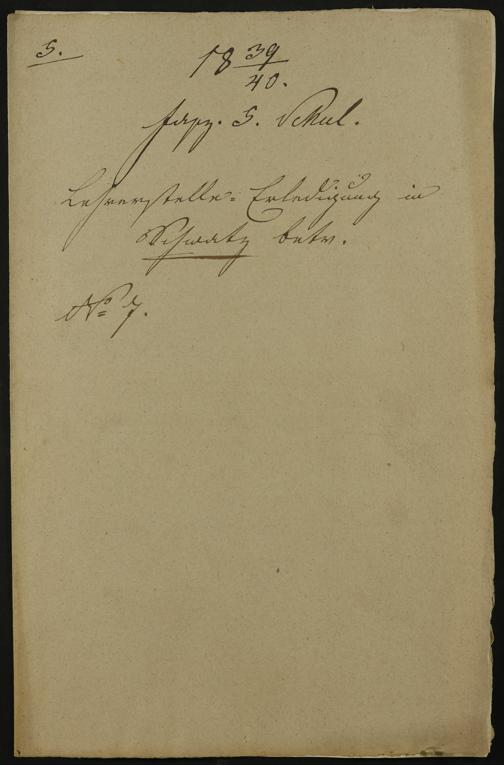 5.
18 39/40.
Fasz. 5. Schul.
Lehrerstelle-Erledigung in
Schwatz betr.
No 7.